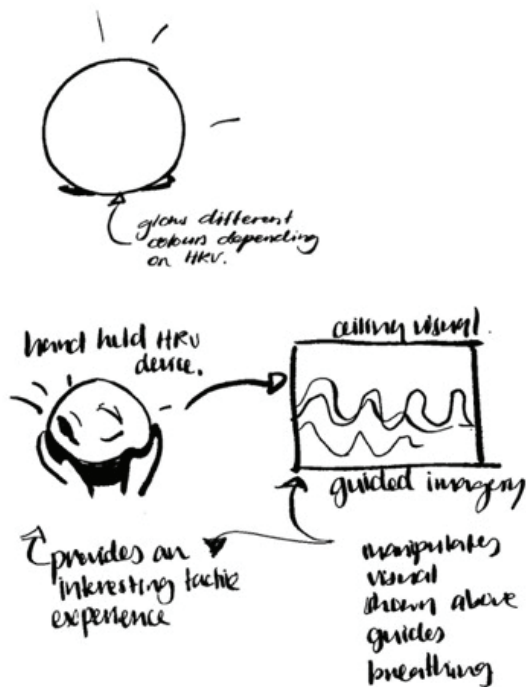 glows different
colours depending
on HRV.
hand held HRV
device.
ceiling visual.
guided imagery
provides an
interesting tactile
experience
manipulates
visual
shown above
guides
breathing